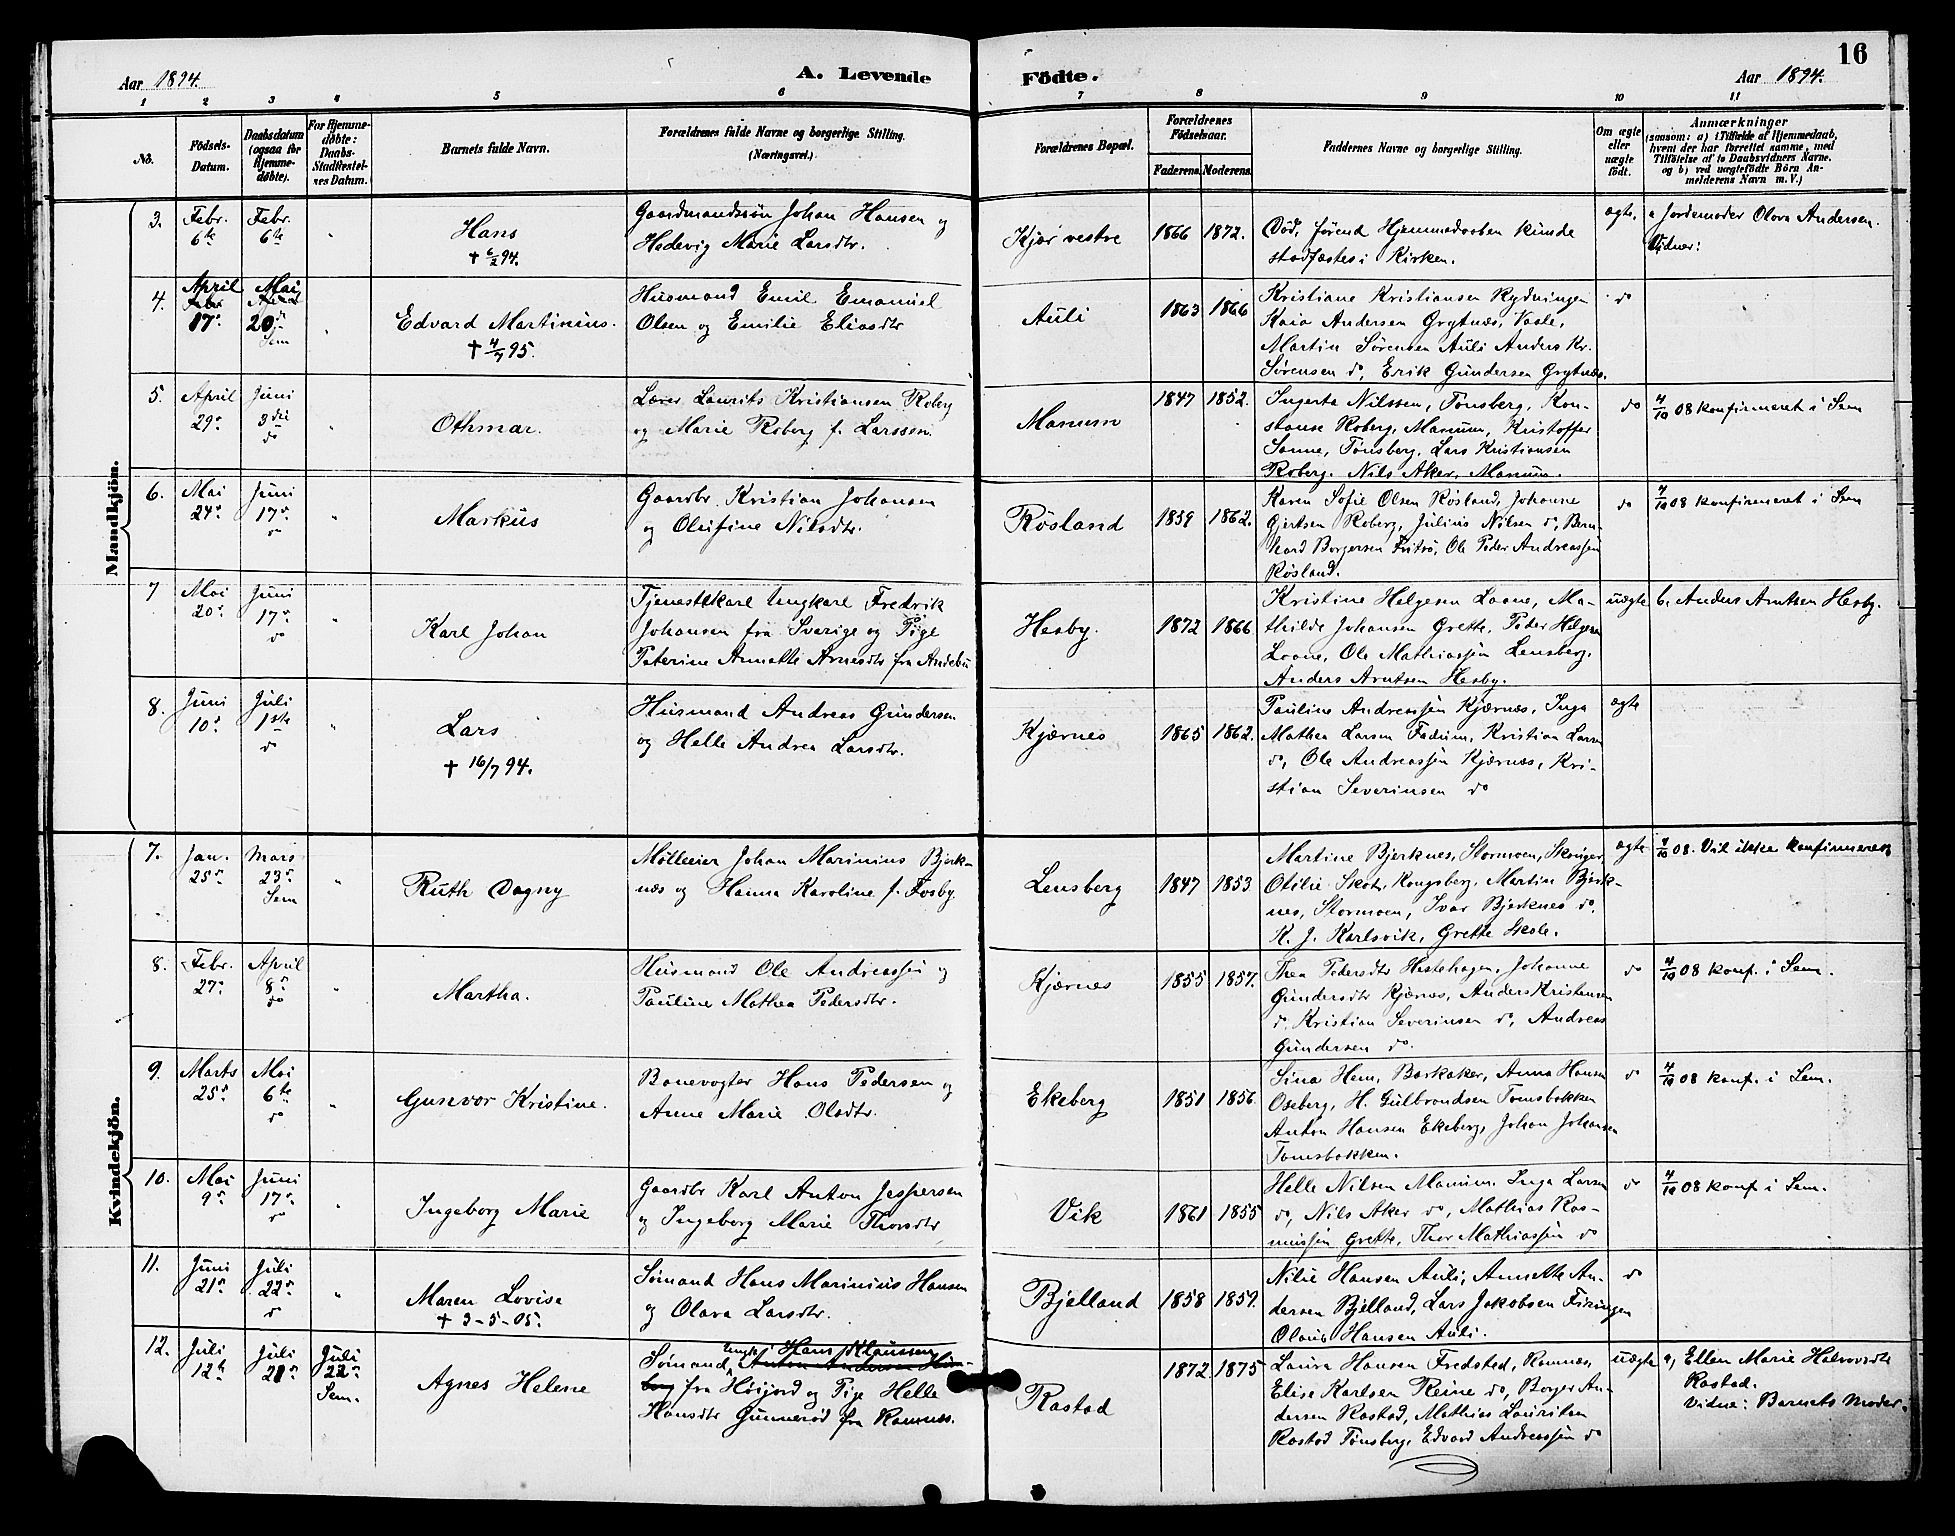 16
Aar 1894.
A. Levende Födte.
Aar 1894.
1 2 3 4 5 6 7 8 9 10 11
No.
Födsels-Datum.
Daabsdatum (ogsaa for Hjemmedøbte).
For Hjemmedøbte: Daabs-Stadfæstelsens Datum.
Barnets fulde Navn.
Forældrenes fulde Navne og borgerlige Stilling.
(Næringsvei.)
Forældrenes Bopæl.
Forældrenes Födselsaar.
Faderens. Moderens.
Faddernes Navne og borgerlige Stilling.
Om ægte eller uægte født.
Anmærkninger
(saasom: a) i Tilfælde af Hjemmedaab, hvem der har forrettet samme, med Tilföielse af to Daabsvidners Navne, og b) ved uægtefødte Börn Anmelderens Navn m. V.)
Mandkjön.
3. Febr. 6te Febr. 6te " Hans
† 6/2 94.
Gaardmandssøn Johan Hansen og
Hedevig Marie Larsdtr.
Kjær vestre 1866 1872.
Død, førend Hjemmedaaben kunde
stadfæstes i Kirken.
ægte.
a Jordemoder Olava Andersen.
Vidner:
4. April 17de Mai 20de Sem " Edvard Martinius.
† 4/7 95.
Husmand Emil Emanuel
Olsen og Emilie Eliasdtr
Auli 1863 1866
Kristiane Kristiansen Rydningen
Kaia Andersen Grytnæs, Vasle,
Martin Sørensen Auli Anders Kr.
Sørensen do, Erik Gundersen Grytnæs.
do
5. April 29de Juni 3die do " Othmar.
Lærer Laurits Kristiansen Roberg
og Marie Roberg f. Larssen.
Manum 1847 1852.
Ingerta Nilssen, Tønsberg, Kon-
stanse Roberg, Manum, Kristoffer
Sanne, Tønsberg, Lars Kristiansen
Roberg. Nils Aker, Manum.
do
4/10 08 konfirmeret i Sem
6. Mai 24de Juni 17de do " Markus
Gaardbr. Kristian Johansen
og Olufine Nilsdtr.
Røsland 1859 1862.
Karen Sofie Olsen Røsland, Johanne
Gjertsen Roberg, Julius Nilsen do, Bern-
hard Borgersen Fritsø, Ole Peder Andreassen
Røsland.
do
4/10 08 konfirmeret i Sem
7 Mai 20de Juni 17de do " Karl Johan
Tjenestekarl Ungkarl Fredrik
Johansen fra Sverige og Pige
Peterine Annette Arnesdtr fra Andebu
Hesby. 1872 1866
Kristine Helgesen Laane, Ma-
thilde Johansen Grette, Peder Helgesen
Laane, Ole Mathiassen Lensberg,
Anders Arntsen Hesby.
uægte
b. Anders Arntsen Hesby.
8. Juni 10de Juli 1ste do " Lars
† 16/7 94.
Husmand Andreas Gundersen
og Helle Andrea Larsdtr.
Kjærnes 1865 1862.
Pauline Andreassen Kjærnes, Inga
Mathea Larsen Fadum, Kristian Larsen
do, Ole Andreassen Kjærnæs, Kri-
stian Severinsen do
ægte
Kvindekjön.
7. Jan. 25de Mars 23de Sem " Ruth Dagny
Mølleeier Johan Marinius Bjerk-
næs og Hanna Karoline f. Fosby.
Lensberg 1847 1853
Martine Bjerknes, Stormoen, Skoger,
Otilie Skot, Kongsberg, Martin Bjerk-
nes, Stormoen, Ivar Bjerknes do,
K. J. Karlsvik, Grette Skole.
ægte
4/10 08. Vil ikke konfirmeres
8. Febr. 27de April 8de do " Martha.
Husmand Ole Andreassen og
Pauline Mathea Pedersdtr.
Kjærnes 1855 1857.
Thea Pedersdtr Hestehagen, Johanne
Gundersdtr Kjærnes, Anders Kristensen
do, Kristian Severinsen do, Andreas
Gundersen do.
do
4/10 08 konf. i Sem.
9. Marts 25de Mai 6te do " Gunvor Kristine.
Banevogter Hans Pedersen og
Anne Marie Olsdtr.
Ekeberg 1851 1856.
Sina Hem, Barkaker, Anna Hansen
Oseberg, H. Gulbrandsen Tomsbakken
Anton Hansen Ekeberg, Johan Johansen
Tomsbakken.
do
4/10 08 konf. i Sem.
10. Mai 9de Juni 17de do " Ingeborg Marie
Gaardbr Karl Anton Jespersen
og Ingeborg Marie Thorsdtr
Vik 1861 1855
Helle Nilsen Manum, Inga Larsen
do, Nils Aker do, Mathias Ras-
mussen Grette, Thor Mathiassen do
do
4/10 08 konf. i Sem.
11. Juni 21de Juli 22de do " Maren Lovise
† 3-5-05.
Sømand Hans Marinius Hansen
og Olava Larsdtr.
Bjelland 1858 1857.
Nilie Hansen Auli, Annette An-
dersen Bjelland, Lars Jakobsen
Olaus Hansen Auli.
do
12. Juli 12te Juli 21de Juli 22de Sem. Agnes Helene
Ungk. Hans Klaussen
Sømand, Anton Andersen Hia-
berg fra Høijord og Pige Helle
Hansdtr Gunnerød fra Ramnæs.
Rastad 1872 1875
Laura Hansen Fredstad, Ramnæs,
Elise Karlsen Reine do, Borger An-
dersen Rastad, Mathias Lauritsen
Rastad Tønsberg, Edvard Andreassen do
uægte
a, Ellen Marie Halvorsdtr
Rastad.
Vidne: Barnets Moder.